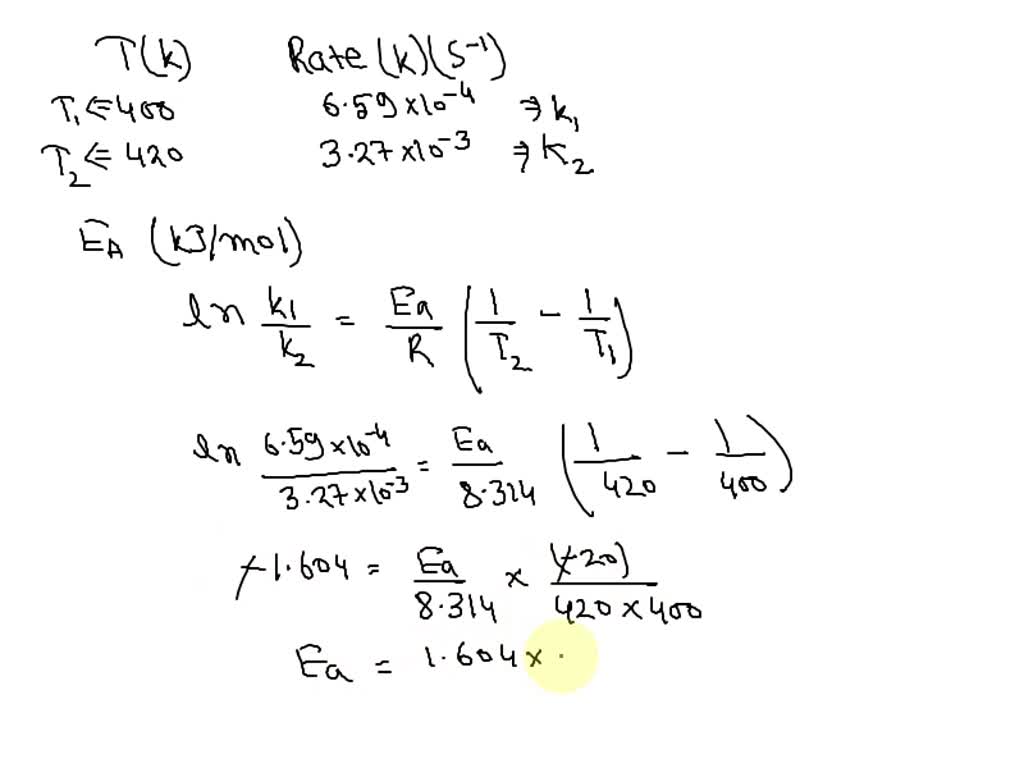 T(k) Rate (k)(s⁻¹)
T₁ ⇐ 400 6.59×10⁻⁴ ⇒ k₁
T₂ ⇐ 420 3.27×10⁻³ ⇒ K₂
EA (kJ/mol)
ln k1/k₂ = Ea/R (1/T₂ - 1/T₁)
ln 6.59×10⁻⁴/3.27×10⁻³ = Ea/8.314 (1/420 - 1/400)
-1.604 = Ea/8.314 × (-20)/420×400
Ea = 1.604×